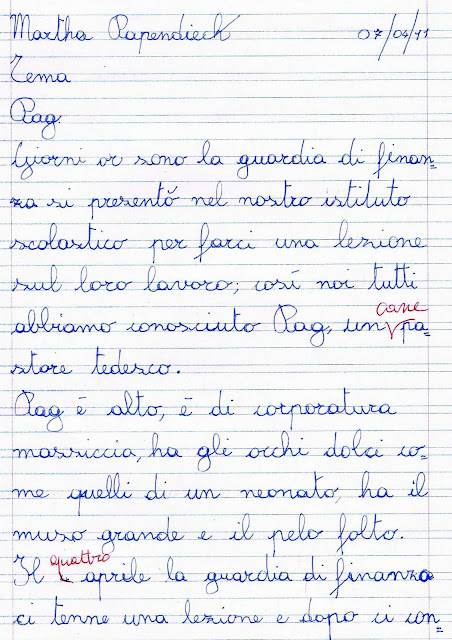 Martha Papendieck 07/04/11
Tema
Rag.
Giorni or sono la guardia di finan=
za si presentò nel nostro istituto
scolastico per farci una lezione
sul loro lavoro; così noi tutti
abbiamo conosciuto Rag, un cane pa=
store tedesco.
Rag è alto, è di corporatura
massiccia, ha gli occhi dolci co=
me quelli di un neonato, ha il
muso grande e il pelo folto.
Il quattro aprile la guardia di finanza
ci tenne una lezione e dopo ci con=